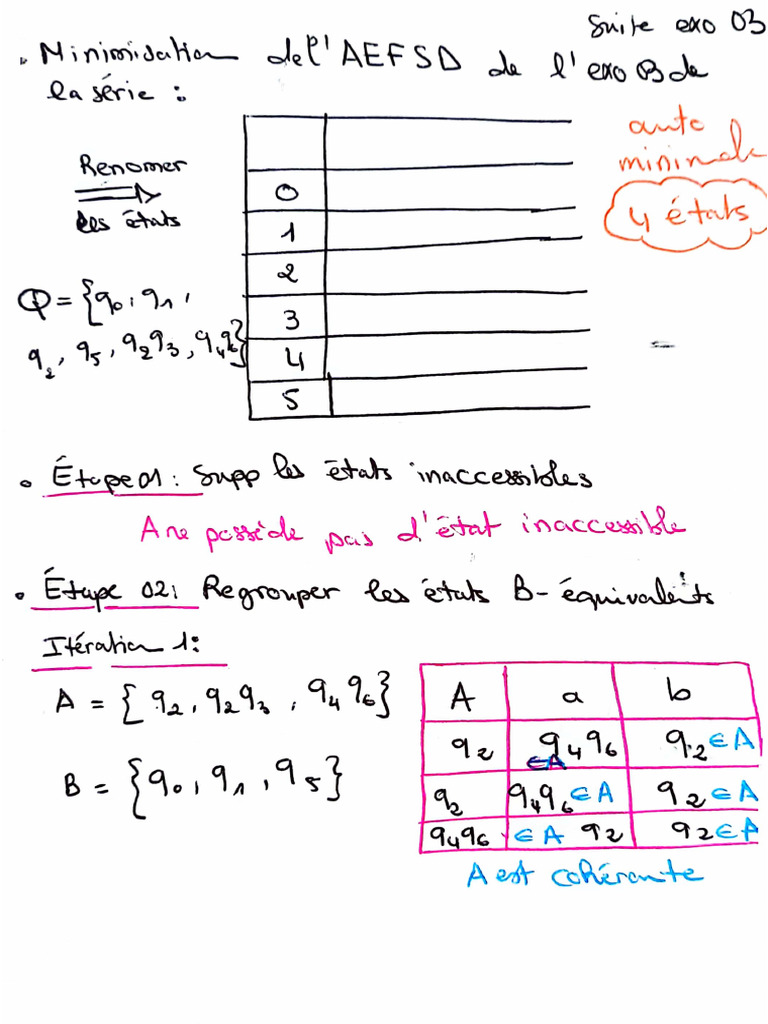 Suite exo 03
. Minimisation de l'AEFSD de l'exo B de
la série :
auto
minimale
4 états
Renomer
les états
0
1
2
3
4
5
Q = {q0, q1,
q2, q5, q2q3, q4q6}
• Étape 01 : Supp les états inaccessibles
A ne posside pas d'état inaccessible
• Étape 02 : Regrouper les états B-équivalents
Itération 1 :
A = {q2, q2q3, q4q6}
B = {q0, q1, q5}
A a b
q2 q4q6 ∈A q2 ∈A
q2 q4q6 ∈A q2 ∈A
q4q6 ∈A q2 q2 ∈A
A est cohérante